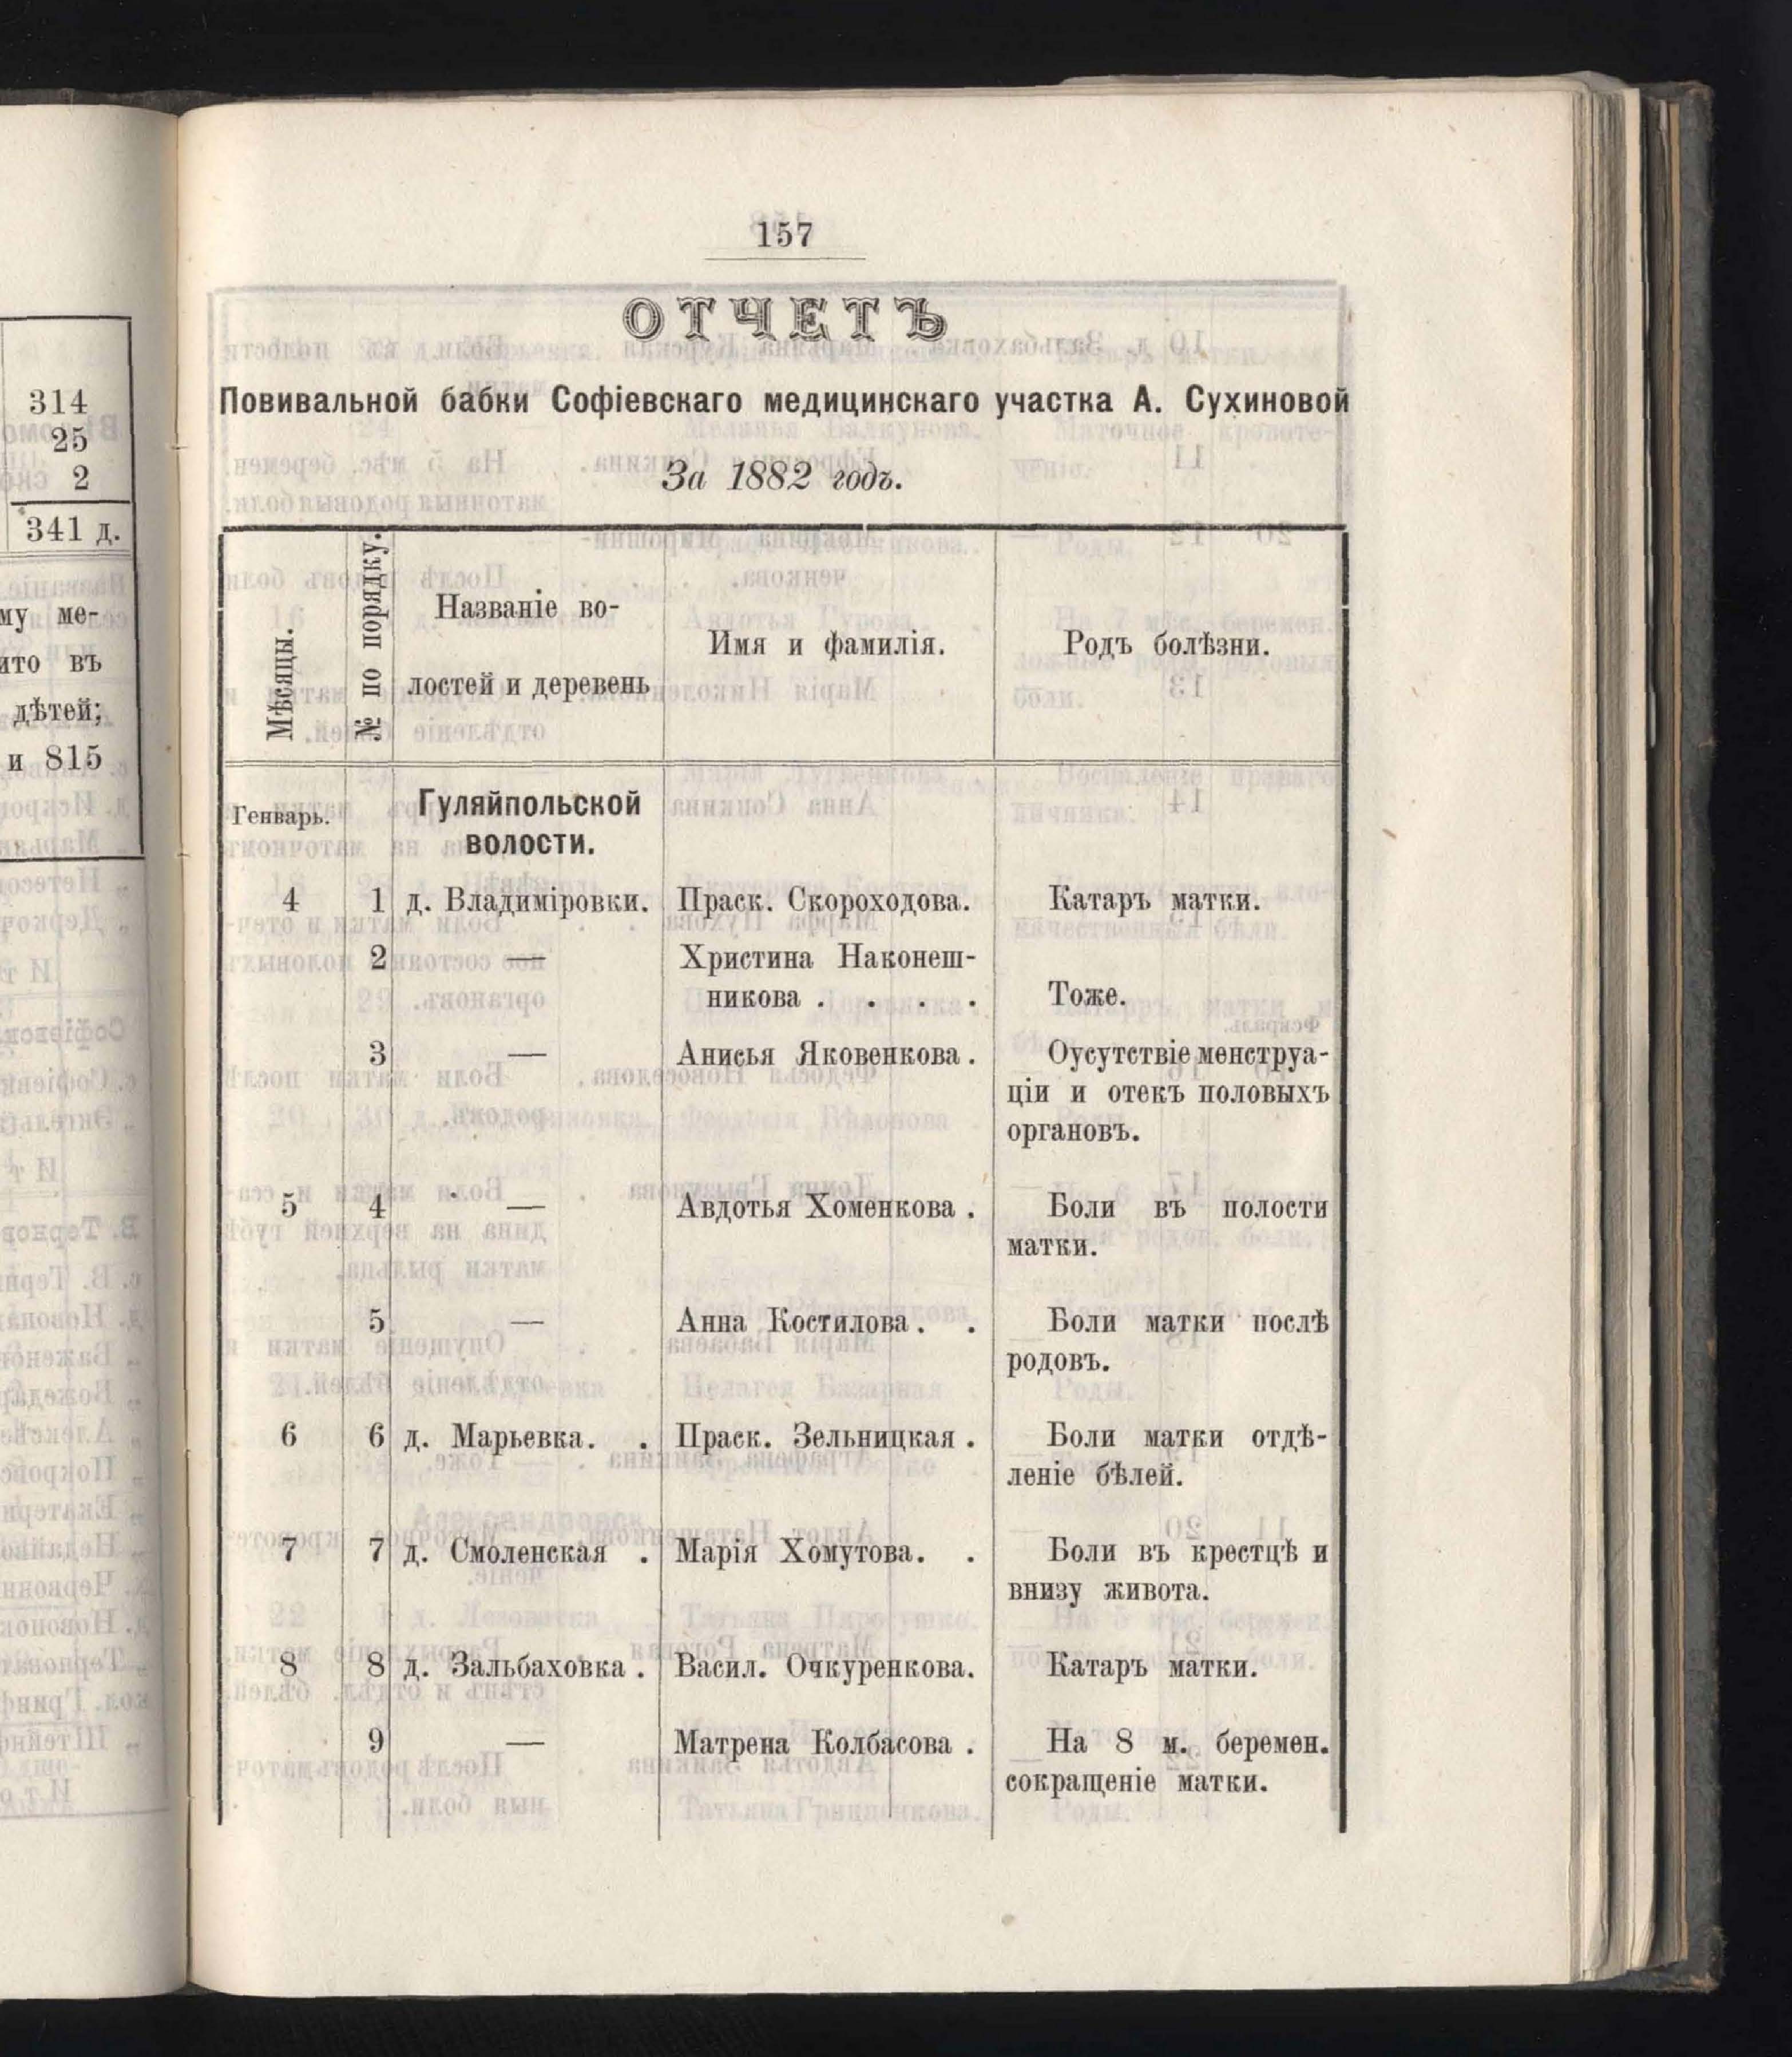 314
25
2
341 д.
му ме-
ито въ
дѣтей;
и 815
157
ОТЧЕТЪ
Повивальной бабки Софіевскаго медицинскаго участка А. Сухиновой
За 1882 годъ.
Мѣсяцы.
№ по порядку.
Названіе во-
лостей и деревень
Имя и фамилія.
Родъ болѣзни.
Генварь.
Гуляйпольской
волости.
4 1 д. Владиміровки. Праск. Скороходова. Катаръ матки.
2 — Христина Наконеш-
никова . . . . Тоже.
3 — Анисья Яковенкова. Оусутствіе менструа-
ціи и отекъ половыхъ
органовъ.
5 4 — Авдотья Хоменкова . Боли въ полости
матки.
5 — Анна Костилова. . Боли матки послѣ
родовъ.
6 6 д. Марьевка. . Праск. Зельницкая . Боли матки отдѣ-
леніе бѣлей.
7 7 д. Смоленская . Марія Хомутова. . Боли въ крестцѣ и
внизу живота.
8 8 д. Зальбаховка . Васил. Очкуренкова. Катаръ матки.
9 — Матрена Колбасова . На 8 м. беремен.
сокращеніе матки.